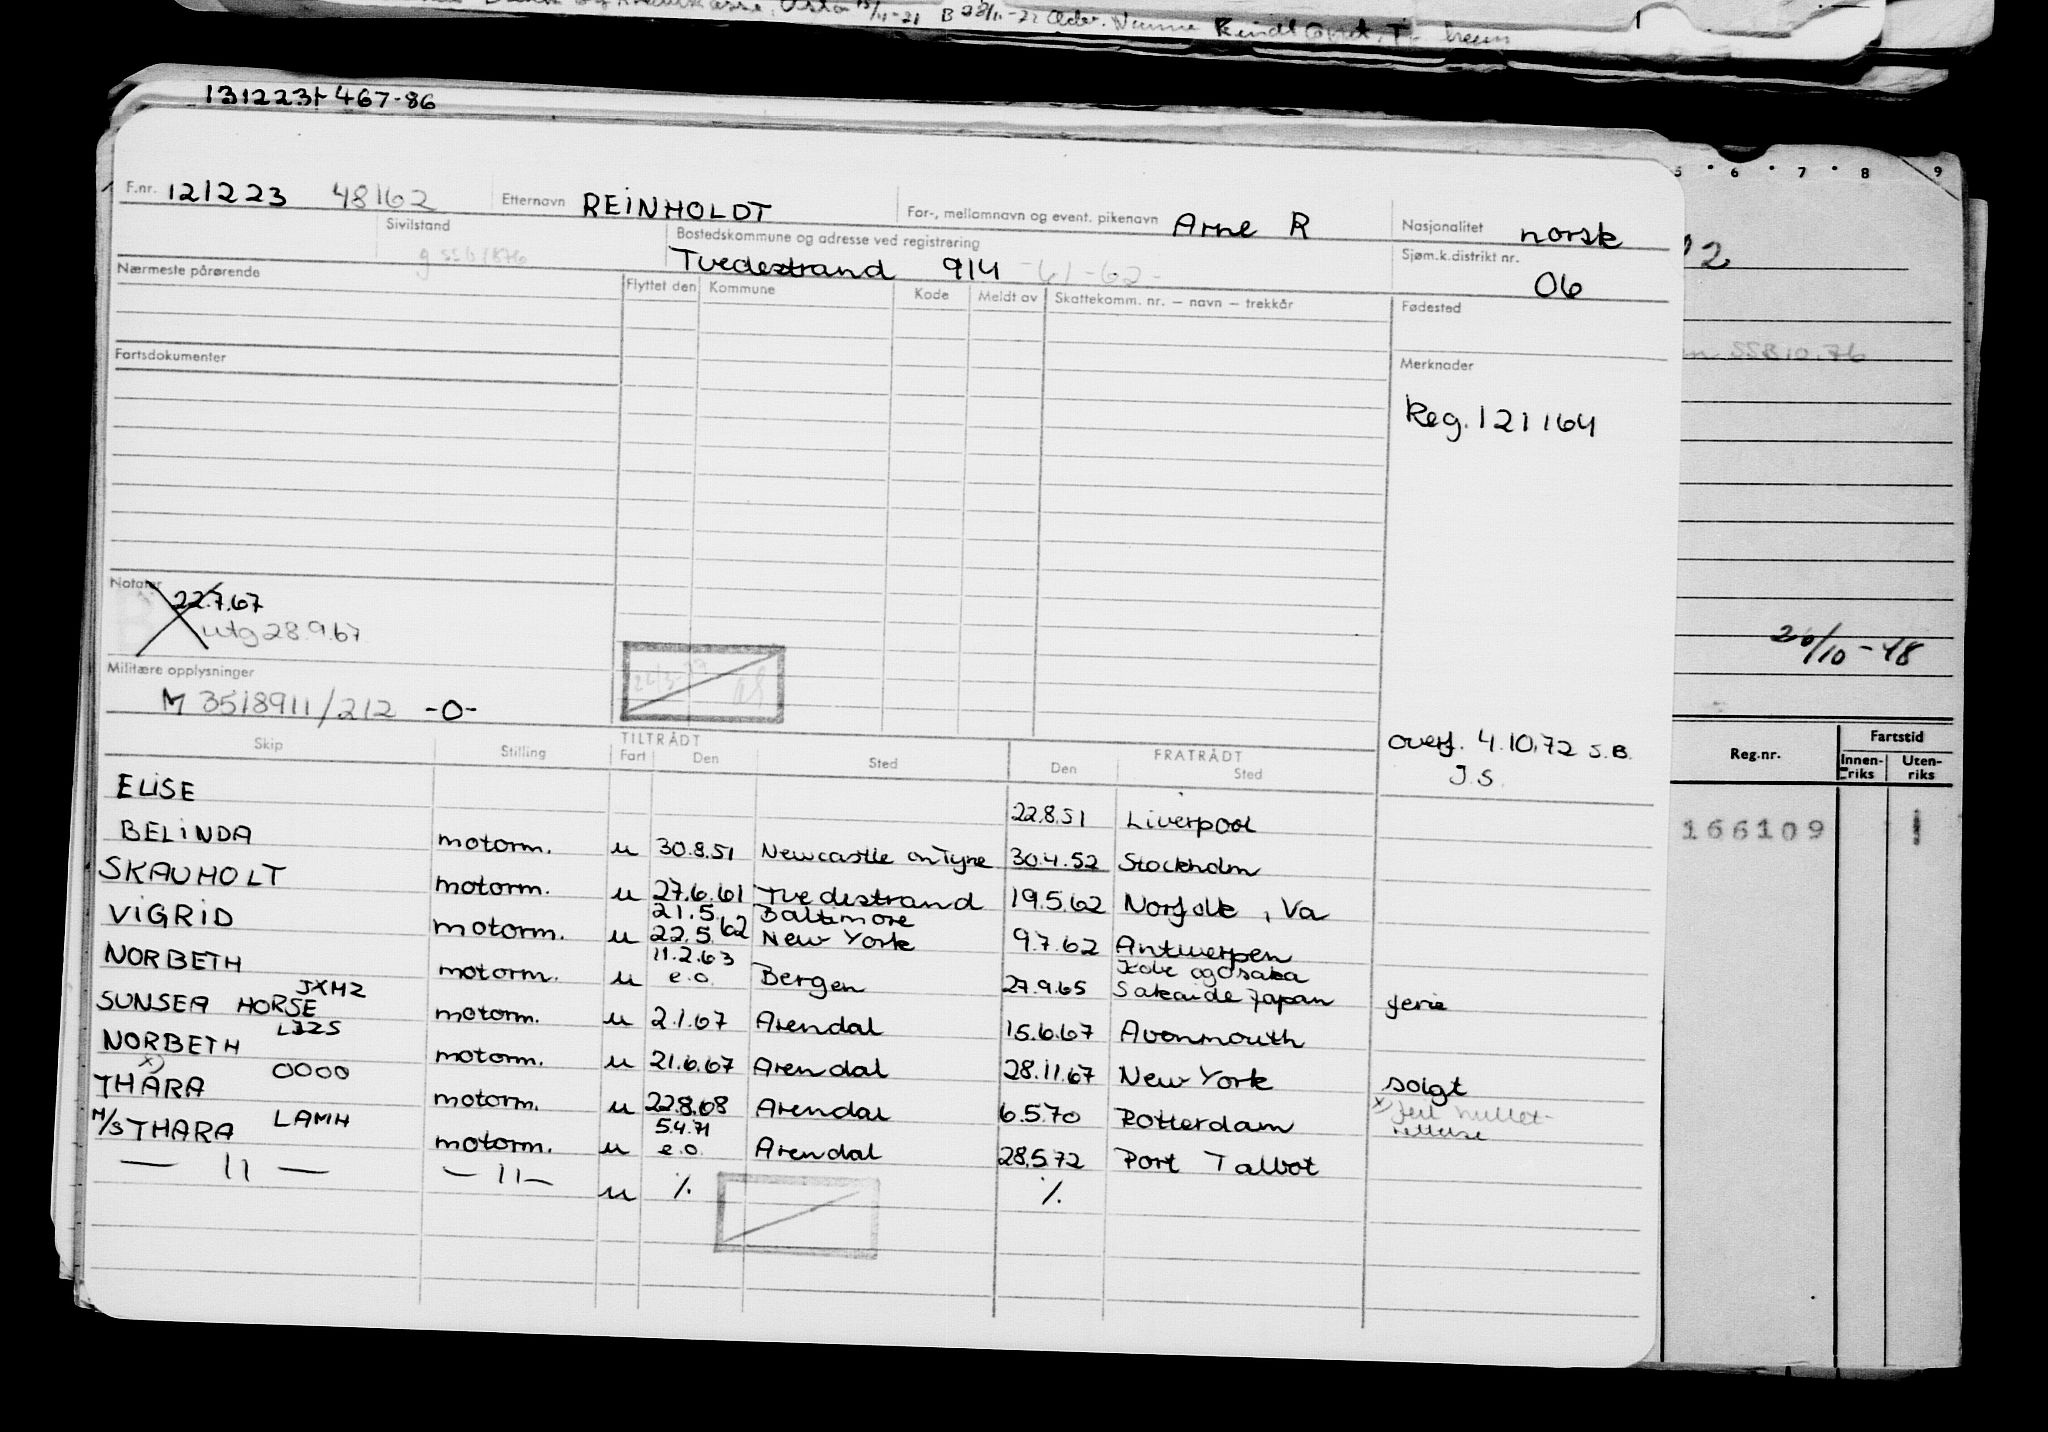 131223 467-86
F.nr. 121223 48162 Etternavn REINHOLDT For-, mellomnavn og event. pikenavn Arne R Nasjonalitet norsk
Sivilstand Bostedskommune og adresse ved registrering Tvedestrand 914 -61-62- Sjøm.k.distrikt nr. 06
Nærmeste pårørende Flyttet den Kommune Kode Meldt av Skattekomm. nr. – navn – trekkår Fødested
Fartsdokumenter Merknader
Reg. 121164
Notater 22.7.67
utg 28.9.67
Militære opplysninger
M 3518911/212 -0-
overf. 4.10.72 S.B.
J.S.
TILTRÅDT FRATRÅDT
Skip Stilling Fart Den Sted Den Sted
ELISE 22.8.51 Liverpool
BELINDA motorm. u 30.8.51 Newcastle on Tyne 30.4.52 Stockholm
SKAUHOLT motorm. u 27.6.61 Tvedestrand 19.5.62 Norfolk, Va
VIGRID motorm. u 21.5. 22.5.62 Baltimore New York 9.7.62 Antwerpen
NORBETH JXMZ motorm. u 11.2.63 e.o. Bergen 27.9.65 Kobe og Osaka Sakaide Japan ferie
SUNSEA HORSE motorm. u 2.1.67 Arendal 15.6.67 Avonmouth
NORBETH motorm. u 21.6.67 Arendal 28.11.67 New York solgt
x)
THARA OOOO motorm. u 22.8.68 Arendal 6.5.70 Rotterdam x) feil
M/S THARA LAMH motorm. u 5.4.71 e.o. Arendal 28.5.72 Port Talbot
— 11 — — 11 — u ⁒ ⁒
5 6 7 8 9
SSB 10.76
26/10-48
Reg.nr. Fartstid
Innen-riks Uten-riks
166109 1